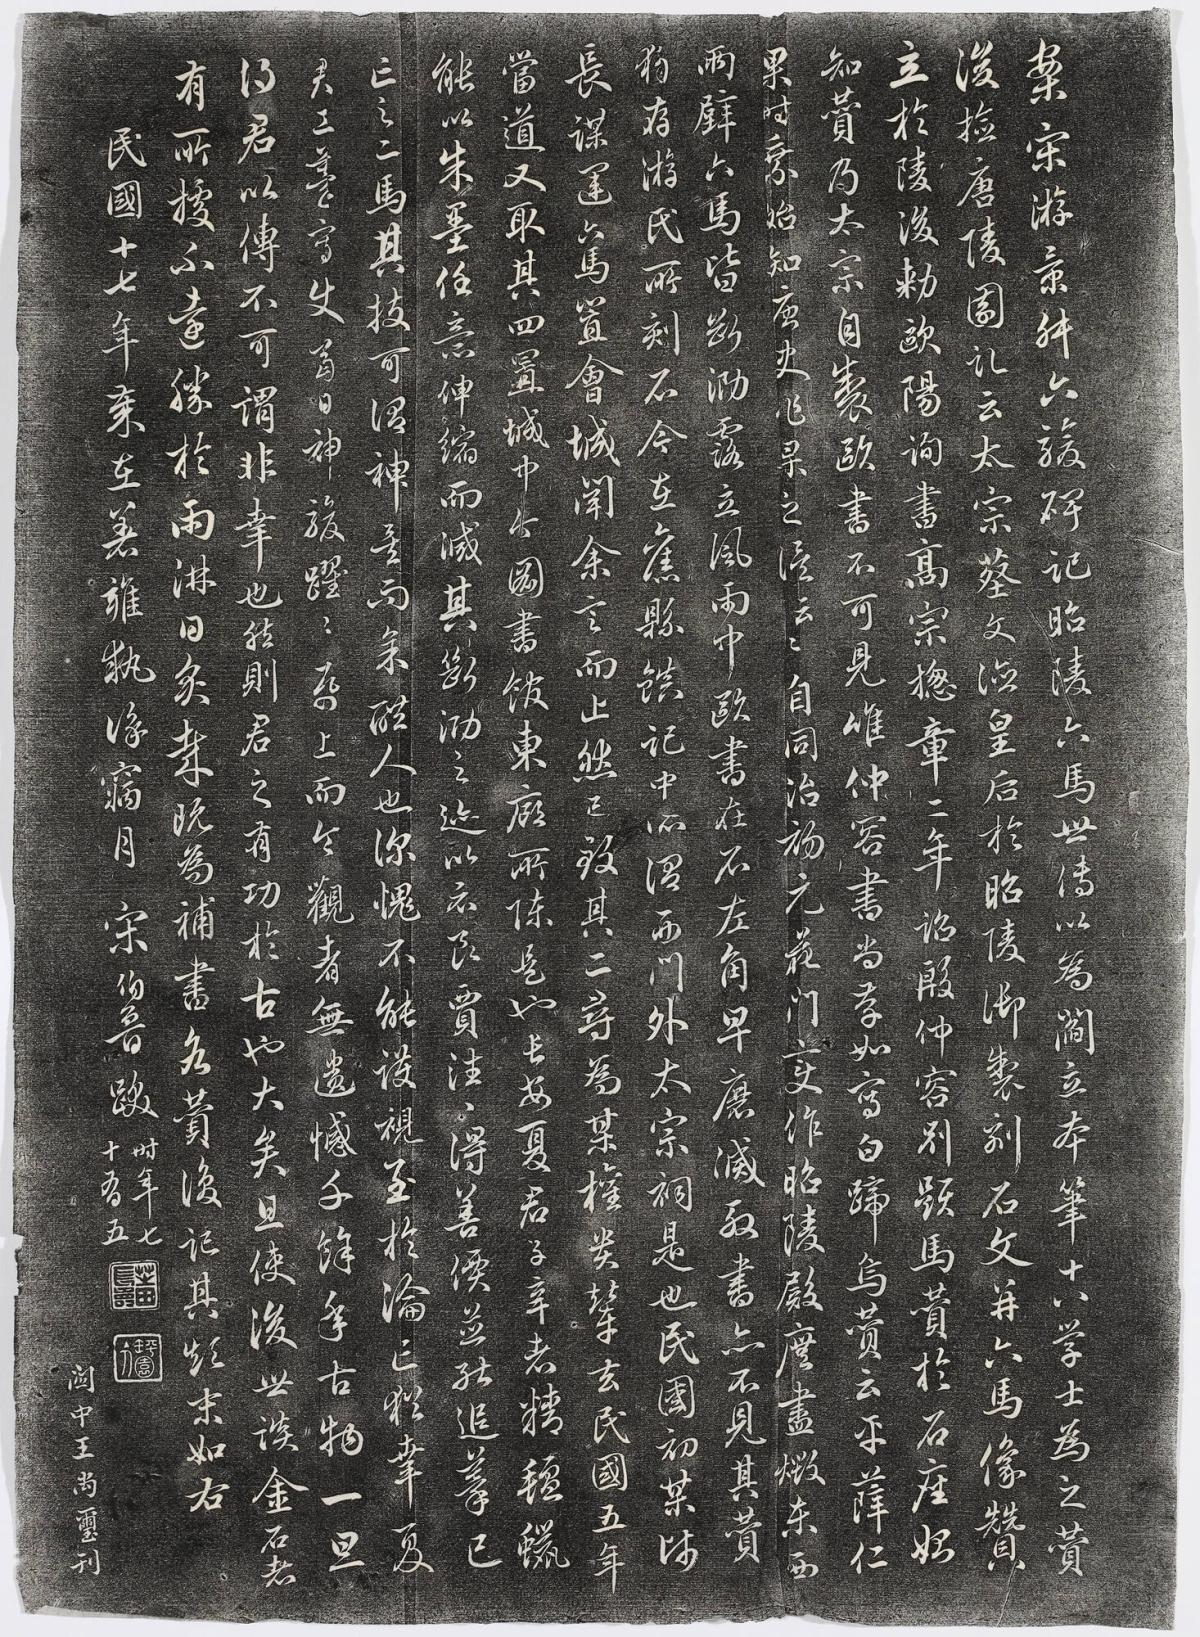 案宋游景叔六駿碑記昭陵六馬世傳以為閻立本筆十八学士為之贊
後撿唐陵園記云太宗葬文德皇后於昭陵御製刻石文并六馬像贊
立於陵後勅歐陽詢書高宗總章二年詔殷仲容別題馬贊於石座始
知贊乃太宗自製歐書不可見唯仲容書尚存如寫白蹄烏贊云平薛仁
果時乘始知唐史作杲之誤云云自同治初元花门变作昭陵殿廡盡燬东西
兩壁六馬皆断泐露立風雨中歐書在石左角早磨滅殷書亦不見其贊
猶存游氏所刻石今在舊縣鎮記中所谓西门外太宗祠是也民國初某师
長謀運六馬置會城闻余言而止然已致其二尋為某權贵輦去民國五年
當道又取其四置城中今圖書館東廊所陳是也长安夏君子辛者精氊蠟
能以朱墨任意伸缩而滅其断泐之迹以示良賈往往得善價並能追摹已
亡之二馬其技可谓神矣而未醒人也深愧不能護視至於淪亡猶幸夏
君工摹寫使當日神駿躍躍帋上而令觀者無遺憾千餘年古物一旦
得君以傳不可謂非幸也然則君之有功於古也大矣且使後世談金石者
有所據不遠勝於雨淋日炙耶既為補書各贊復記其顛末如右
民國十七年秉在著雍執徐窩月 宋伯魯跋 时年七十有五
阎中王尚璽刊